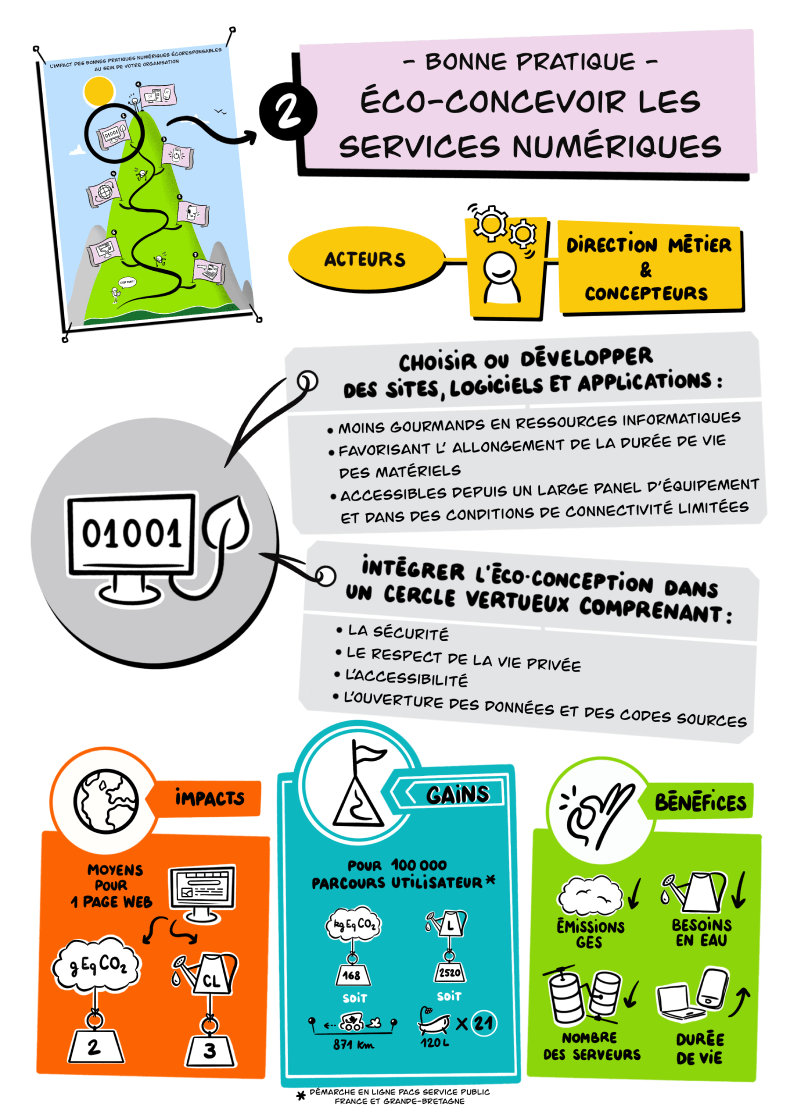 L'IMPACT DES BONNES PRATIQUES NUMÉRIQUES ÉCORESPONSABLES
AU SEIN DE VOTRE ORGANISATION
2
– BONNE PRATIQUE –
ÉCO-CONCEVOIR LES
SERVICES NUMÉRIQUES
ACTEURS
DIRECTION MÉTIER
&
CONCEPTEURS
CHOISIR OU DÉVELOPPER
DES SITES, LOGICIELS ET APPLICATIONS :
• MOINS GOURMANDS EN RESSOURCES INFORMATIQUES
• FAVORISANT L' ALLONGEMENT DE LA DURÉE DE VIE
DES MATÉRIELS
• ACCESSIBLES DEPUIS UN LARGE PANEL D'ÉQUIPEMENT
ET DANS DES CONDITIONS DE CONNECTIVITÉ LIMITÉES
01001
INTÉGRER L'ÉCO-CONCEPTION DANS
UN CERCLE VERTUEUX COMPRENANT :
• LA SÉCURITÉ
• LE RESPECT DE LA VIE PRIVÉE
• L'ACCESSIBILITÉ
• L'OUVERTURE DES DONNÉES ET DES CODES SOURCES
IMPACTS
MOYENS
POUR
1 PAGE WEB
g Eq CO2
CL
2
3
GAINS
POUR 100 000
PARCOURS UTILISATEUR*
kg Eq CO2
L
168
2520
SOIT
SOIT
871 Km
120 L
X 21
* DÉMARCHE EN LIGNE PACS SERVICE PUBLIC
FRANCE ET GRANDE-BRETAGNE
BÉNÉFICES
ÉMISSIONS
GES
BESOINS
EN EAU
NOMBRE
DES SERVEURS
DURÉE
DE VIE